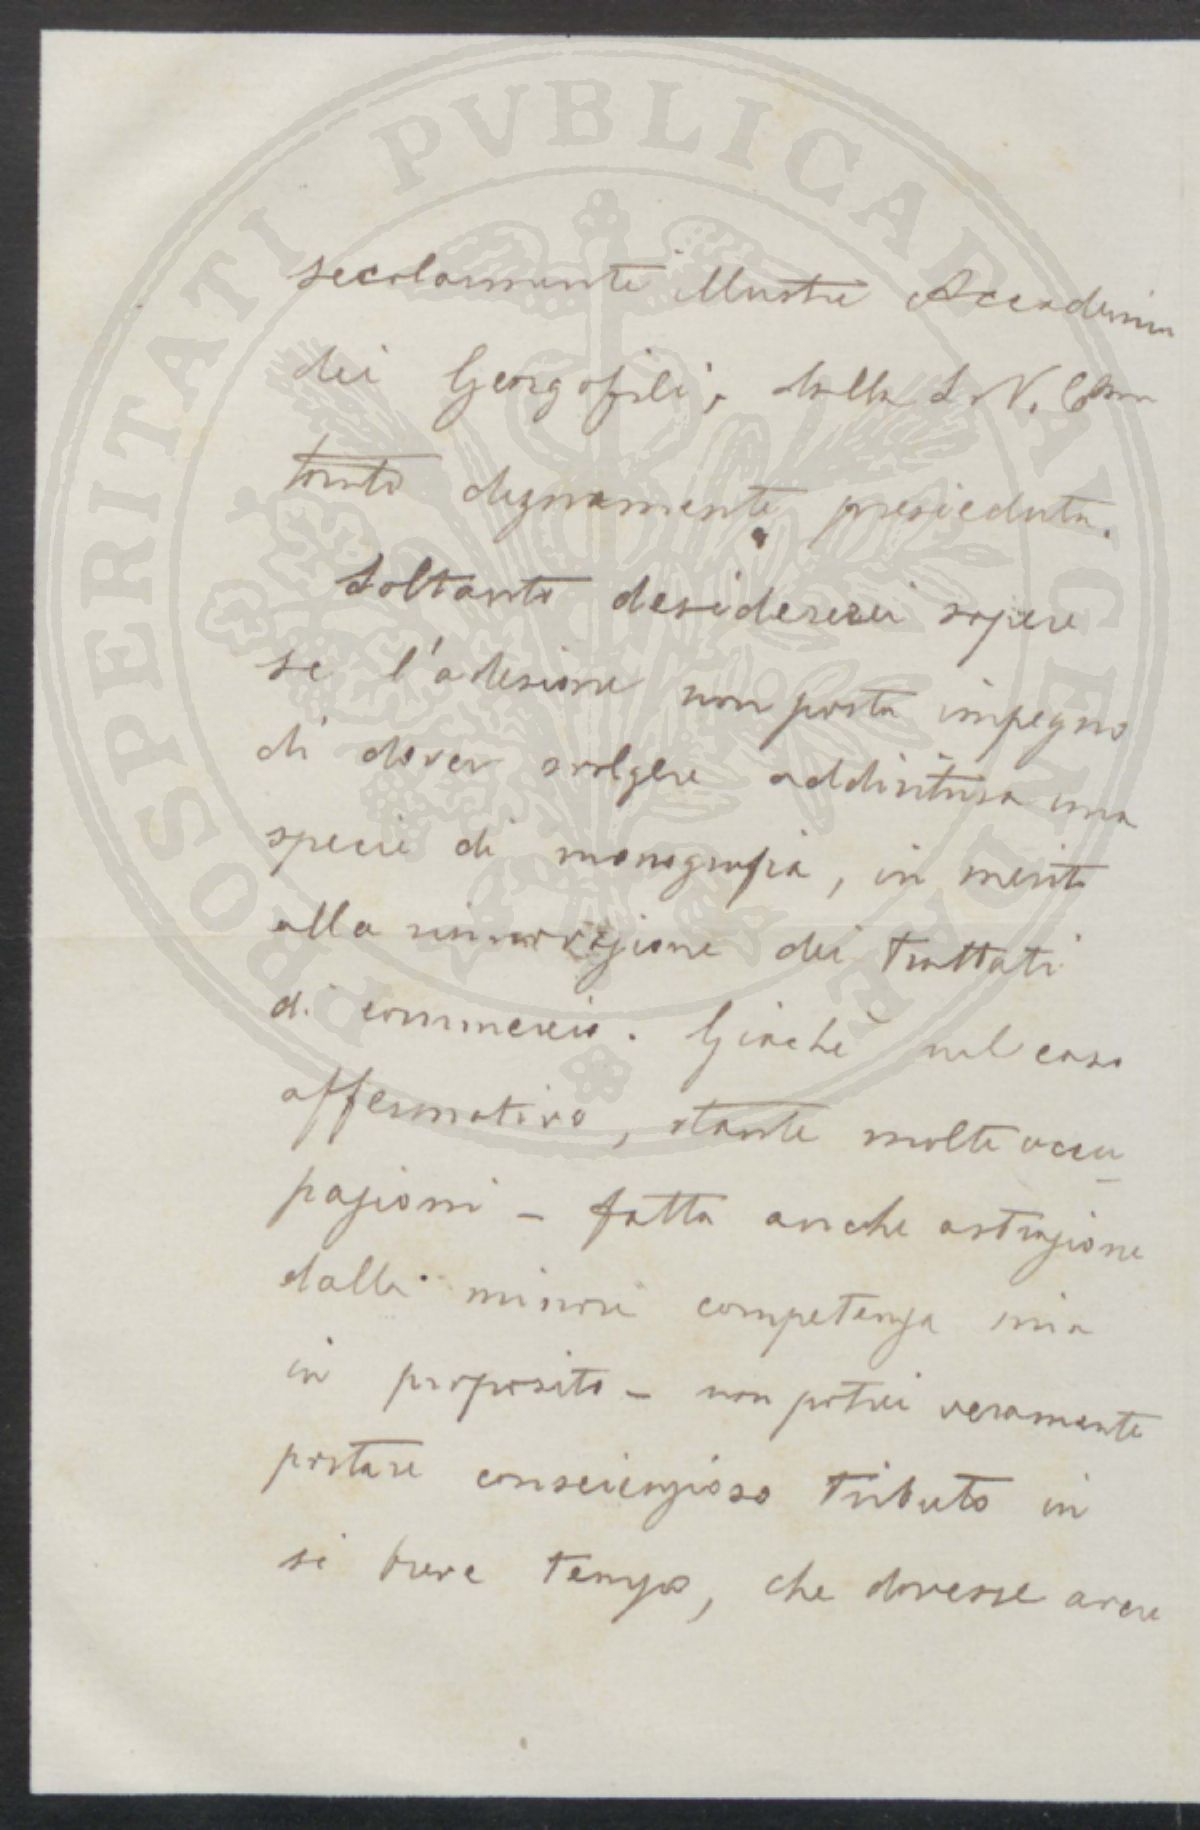 PROSPERITATI PVBLICAE AVGENDAE
secolarmente illustre Accademia
dei Georgofili, dalla S. V. Ill.ma
tanto degnamente presieduta.
Soltanto desidererei sapere
se l'adesione non porta impegno
di dover svolgere addirittura una
specie di monografia, in merito
alla rinnovazione dei trattati
di commercio. Giachè nel caso
affermativo, stante molte occu
pazioni – fatta anche astrazione
dalla minore competenza mia
in proposito – non potrei veramente
portare conscienzioso tributo in
sì breve tempo, che dovesse avere